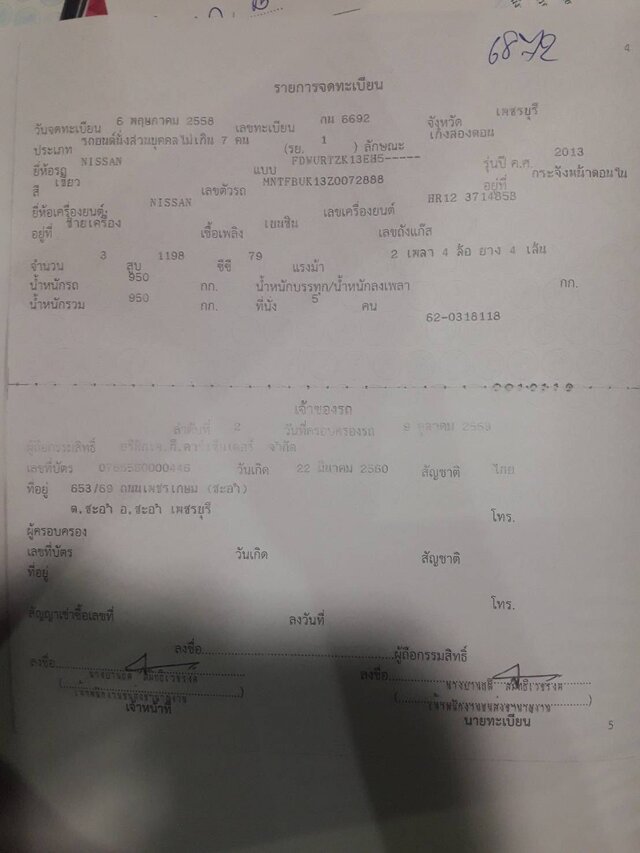 6872
4
รายการจดทะเบียน
วันจดทะเบียน 6 พฤษภาคม 2558 เลขทะเบียน กน 6692 จังหวัด เพชรบุรี
ประเภท รถยนต์นั่งส่วนบุคคลไม่เกิน 7 คน (รย. 1 ) ลักษณะ เก๋งสองตอน
ยี่ห้อรถ NISSAN แบบ FDWURTZK13EH5----- รุ่นปี ค.ศ. 2013
สี เขียว เลขตัวรถ MNTFBUK13Z0072888 อยู่ที่ กระจังหน้าตอนใน
ยี่ห้อเครื่องยนต์ NISSAN เลขเครื่องยนต์ HR12 371485B
อยู่ที่ ซ้ายเครื่อง เชื้อเพลิง เบนซิน เลขถังแก๊ส
จำนวน 3 สูบ 1198 ซีซี 79 แรงม้า 2 เพลา 4 ล้อ ยาง 4 เส้น
น้ำหนักรถ 950 กก. น้ำหนักบรรทุก/น้ำหนักลงเพลา กก.
น้ำหนักรวม 950 กก. ที่นั่ง 5 คน
62-0318118
เจ้าของรถ
ลำดับที่ 2 วันที่ครอบครองรถ 9 ตุลาคม
ผู้ถือกรรมสิทธิ์ จำกัด
เลขที่บัตร วันเกิด 22 มีนาคม 2560 สัญชาติ ไทย
ที่อยู่ 653/69 ถนนเพชรเกษม (ชะอำ)
ต.ชะอำ อ.ชะอำ เพชรบุรี โทร.
ผู้ครอบครอง
เลขที่บัตร วันเกิด สัญชาติ
ที่อยู่
โทร.
สัญญาเช่าซื้อเลขที่ ลงวันที่
ลงชื่อ ผู้ถือกรรมสิทธิ์
ลงชื่อ ลงชื่อ
เจ้าหน้าที่ นายทะเบียน
5